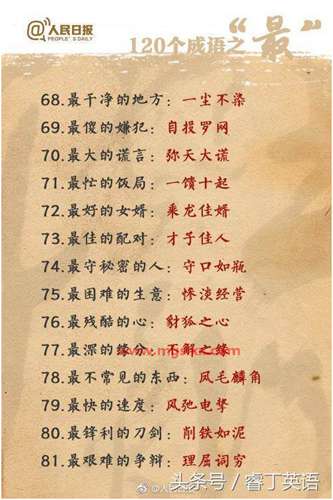 @人民日报
PEOPLE'S DAILY
120个成语之“最”
68.最干净的地方：一尘不染
69.最傻的嫌犯：自投罗网
70.最大的谎言：弥天大谎
71.最忙的饭局：一馈十起
72.最好的女婿：乘龙佳婿
73.最佳的配对：才子佳人
74.最守秘密的人：守口如瓶
75.最困难的生意：惨淡经营
76.最残酷的心：豺狐之心
77.最深的缘分：不解之缘
78.最不常见的东西：凤毛麟角
79.最快的速度：风驰电掣
80.最锋利的刀剑：削铁如泥
81.最艰难的争辩：理屈词穷
@人民日报
头条号／睿丁英语